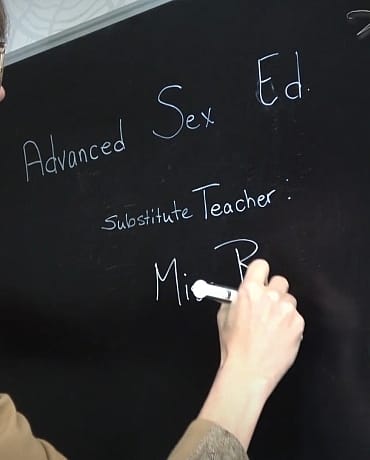 Advanced Sex Ed.
Substitute Teacher:
R